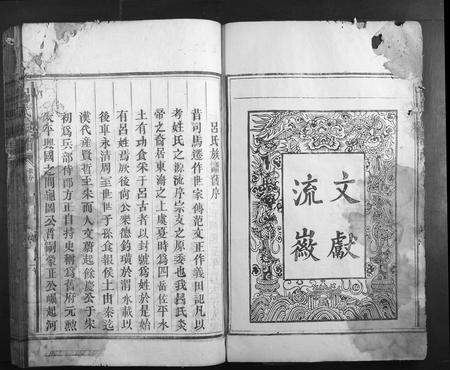 文獻
流徽
呂氏族譜舊序
昔司馬遷作世家傳范文正作義田記凡以
考姓氏之源流序宗支之原委也我呂氏炎
帝之裔居東海之上虞夏時為四岳佐平水
土有功食采于呂古者以封號為姓於是始
有呂姓焉厥後尚公乘德釣璜於渭水載以
後車永清周室世世子孫食報侯土由秦迄
漢代產賢哲至朱而人文蔚起餘慶公于宋
初為兵部侍郎方正自持史稱為舊府元勲
太平興國之間龜圖公首嗣蒙正公崛起河